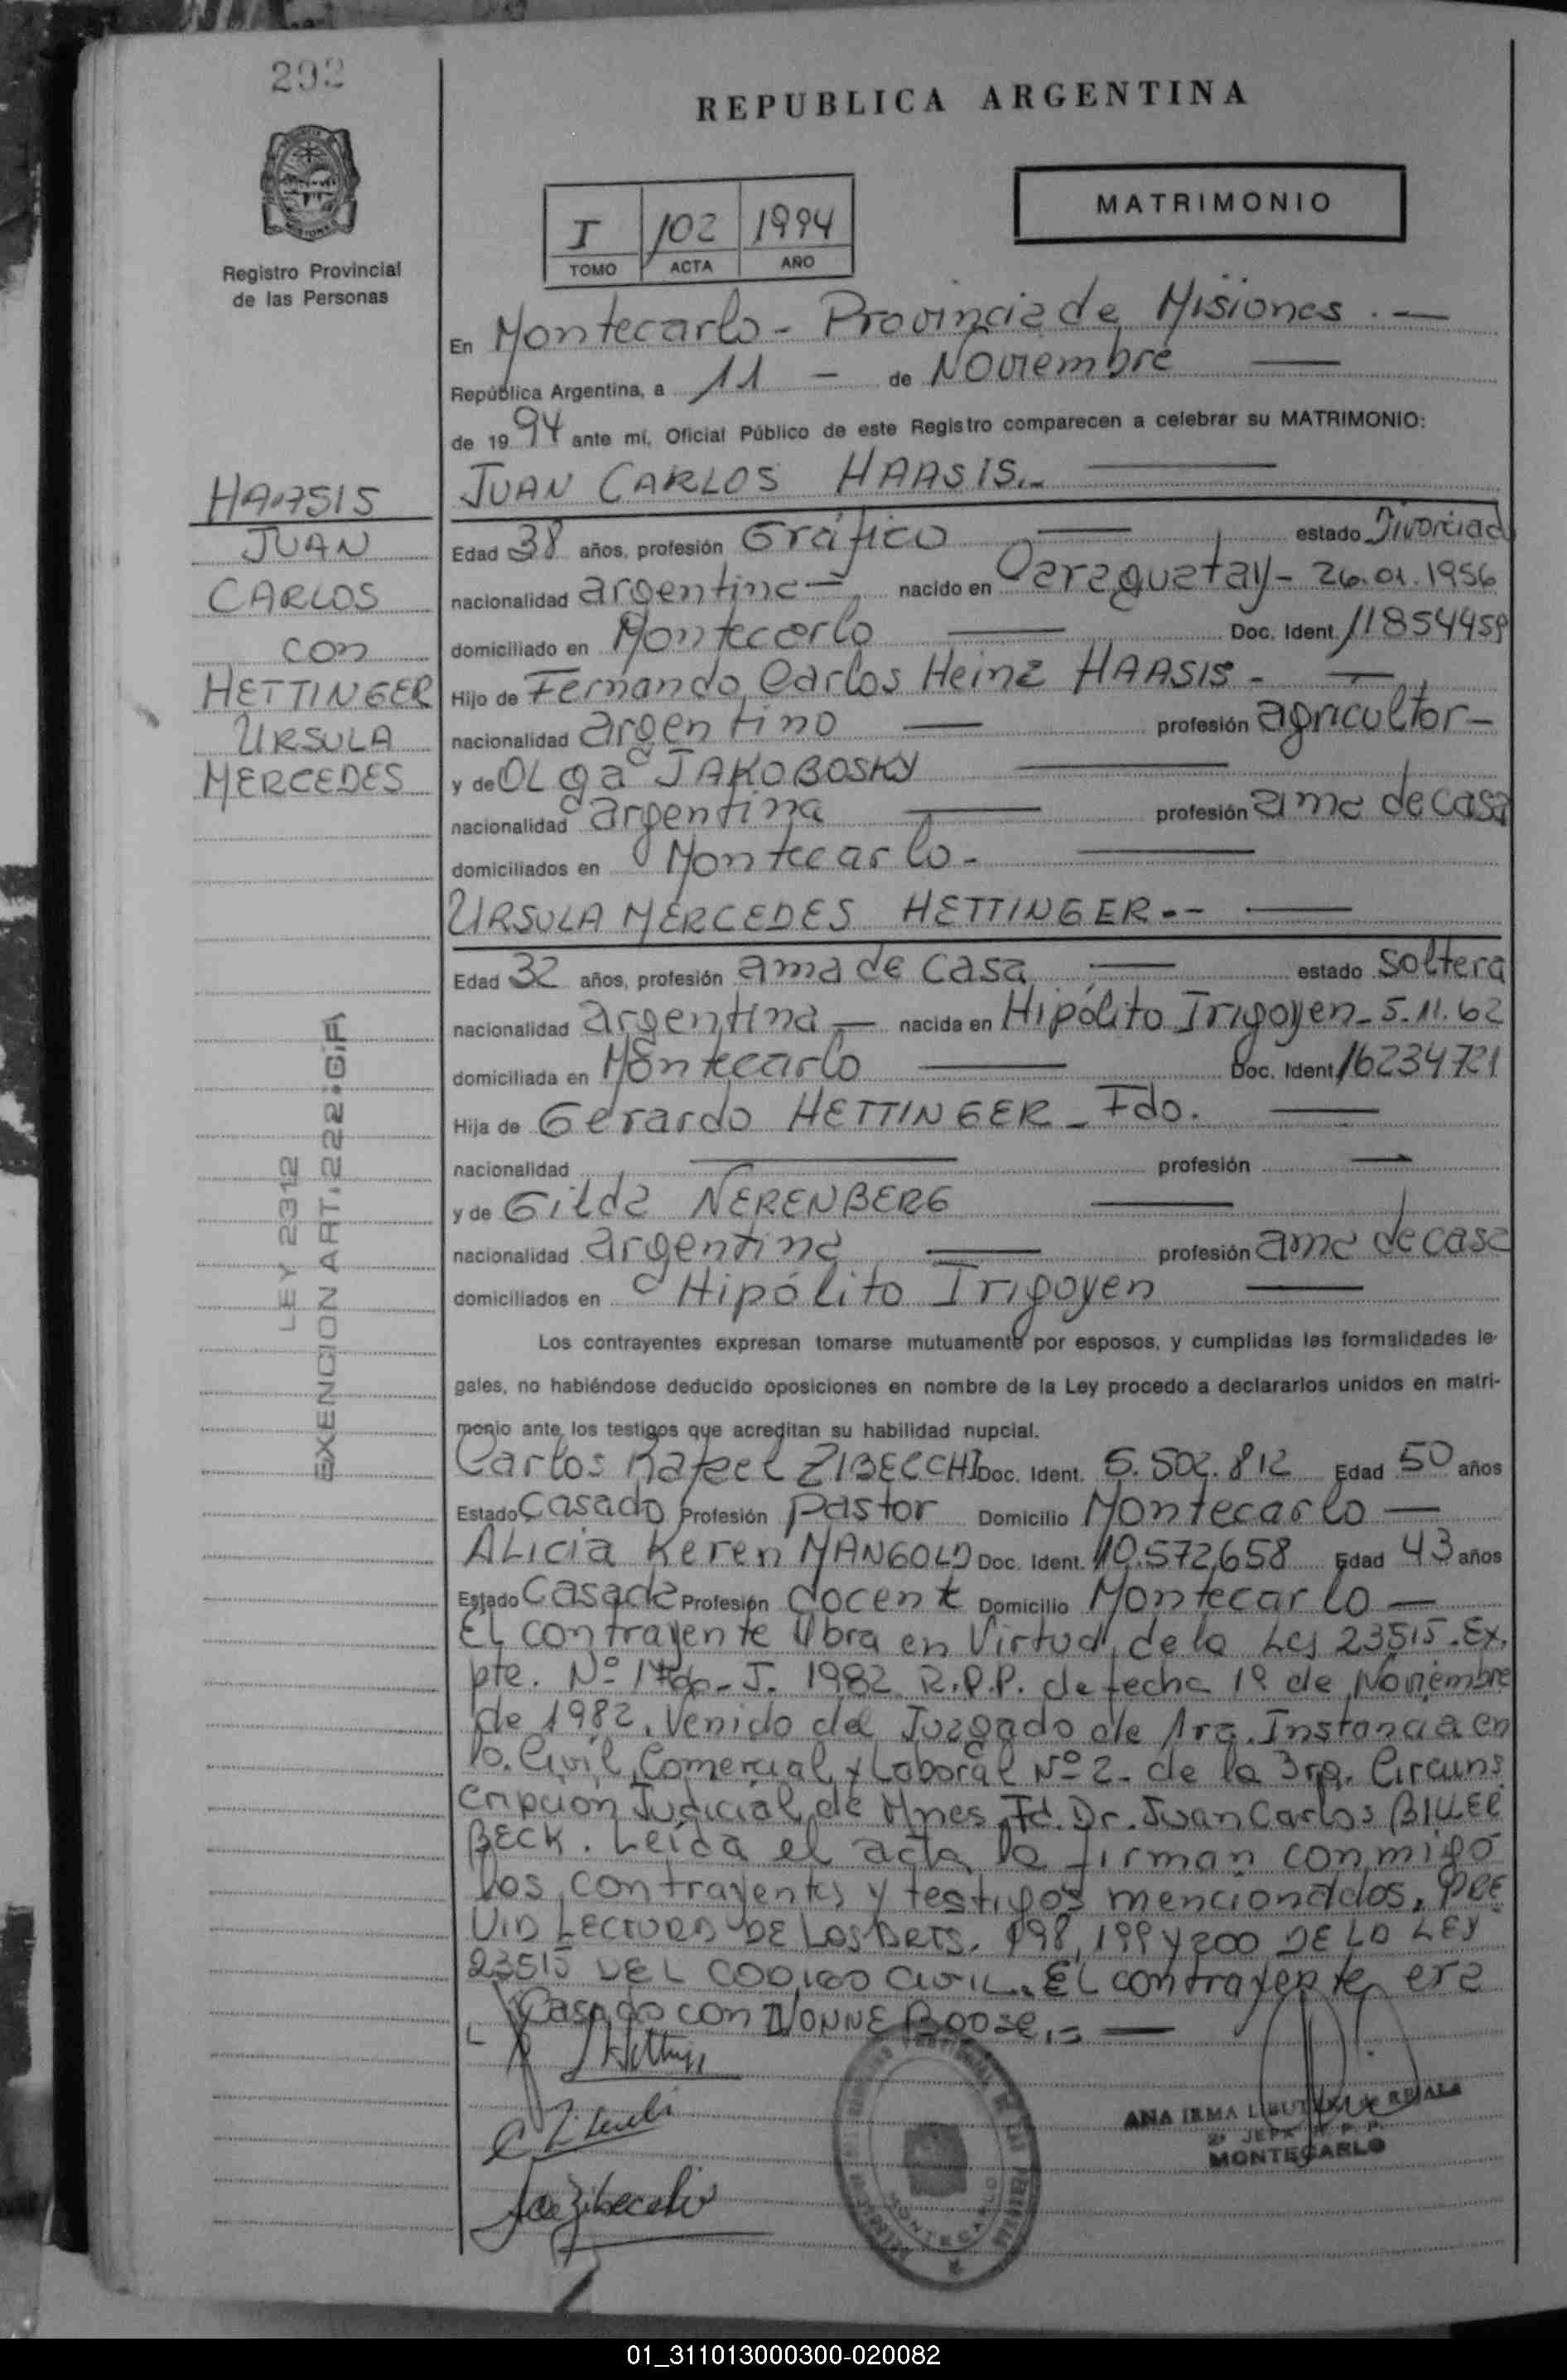 292
REPUBLICA ARGENTINA
MATRIMONIO
I 102 1994
TOMO ACTA AÑO
Registro Provincial
de las Personas
En Montecarlo - Provincia de Misiones . —
República Argentina, a 11 — de Noviembre —
de 19 94 ante mí, Oficial Público de este Registro comparecen a celebrar su MATRIMONIO:
JUAN CARLOS HAASIS.- —
HAASIS
JUAN
CARLOS
con
HETTINGER
URSULA
MERCEDES
Edad 38 años, profesión Gráfico — estado Divorciad
nacionalidad argentina — nacido en Caraguatay - 26.01.1956
domiciliado en Montecarlo — Doc. Ident. 11854459
Hijo de Fernando Carlos Heinz HAASIS - —
nacionalidad argentino — profesión agricultor -
y de OLga JAKOBOSKY —
nacionalidad argentina — profesión ama de casa
domiciliados en Montecarlo - —
URSULA MERCEDES HETTINGER.-- —
Edad 32 años, profesión ama de casa — estado soltera
nacionalidad argentina — nacida en Hipólito Irigoyen - 5.11.62
domiciliada en Montecarlo — Doc. Ident. 16234721
Hija de Gerardo HETTINGER - Fdo. —
nacionalidad — profesión —
y de Gilda NERENBERG —
nacionalidad argentina — profesión ama de casa
domiciliados en Hipólito Irigoyen —
LEY 2312
EXENCION ART. 222 • G.F.
Los contrayentes expresan tomarse mutuamente por esposos, y cumplidas las formalidades le-
gales, no habiéndose deducido oposiciones en nombre de la Ley procedo a declararlos unidos en matri-
monio ante los testigos que acreditan su habilidad nupcial.
Carlos Rafael ZIBECCHI Doc. Ident. 5.502.812 Edad 50 años
Estado Casado Profesión pastor Domicilio Montecarlo —
ALicia Keren MANGOLD Doc. Ident. 10.572,658 Edad 43 años
Estado Casada Profesión docente Domicilio Montecarlo —
El contrayente Obra en Virtud de la Ley 23515. Ex.
pte. Nº J. 1982 R.P.P. de fecha 1º de Noviembre
de 1982. Venido del Juzgado de 1ra. Instancia en
lo. Civil, Comercial y Laboral Nº 2 - de la 3ra. Circuns
cripción Judicial de Mnes, Fd. Dr. Juan Carlos BILLER
BECK. Leída el acta la firman conmigo
los contrayentes y testigos mencionados. PRE
VIA LECTURA DE LOS ARTS. 198, 199 Y 200 DE LA LEY
23515 DEL CODIGO CIVIL. El contrayente era
Casado con IVONNE BOOSE.= —
MONTECARLO
ANA IRMA
2º JEFA R.P.P.
MONTECARLO
01_311013000300-020082